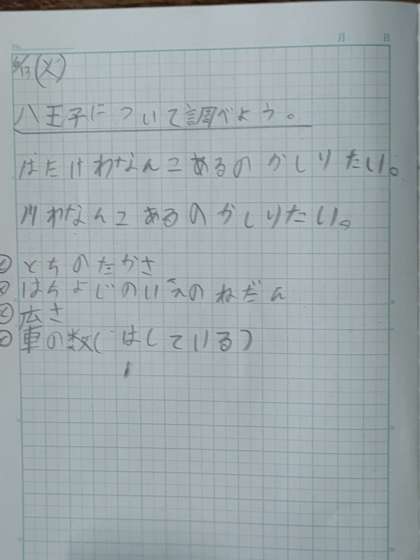 月 日
6/13(火)
八王子について調べよう。
はたけわなんこあるのかしりたい。
川わなんこあるのかしりたい。
とちのたかさ
はちよじのいえのねだん
広さ
車の数(はしている)